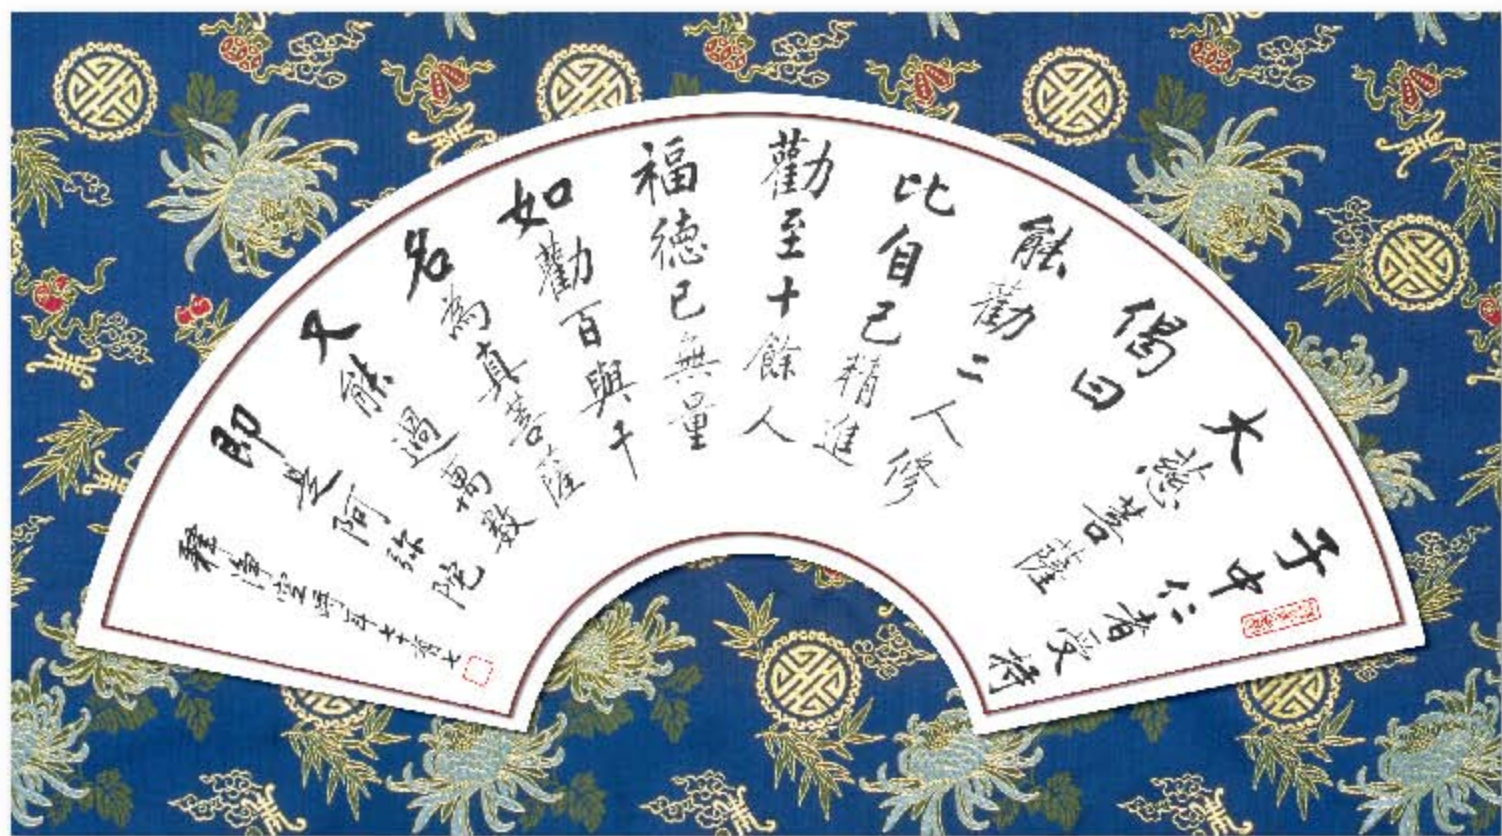 子中仁者受持
大慈菩薩
偈曰
能勸二人修
比自己精進
勸至十餘人
福德已無量
如勸百與千
名為真菩薩
又能過萬數
即是阿弥陀
釋淨空時年七十有七